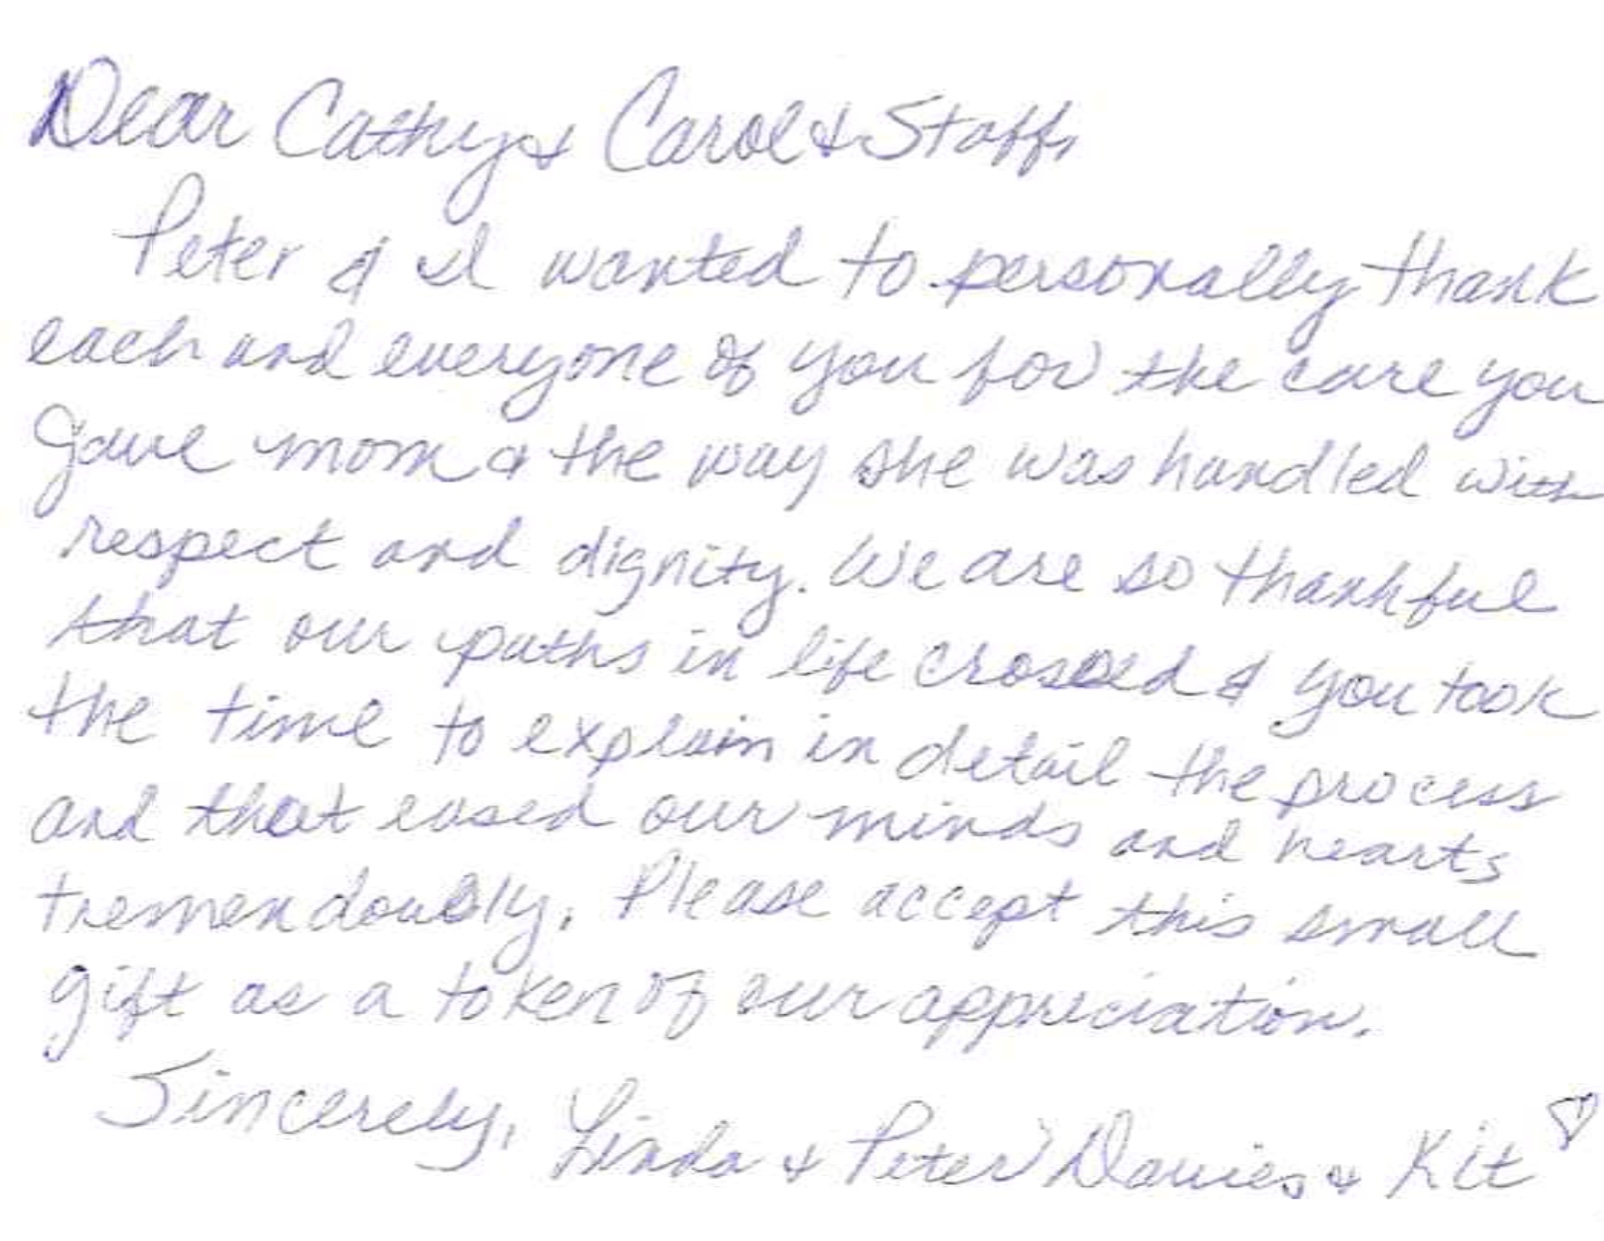 Dear Cathy & Carol & Staff,
Peter & I wanted to personally thank
each and everyone of you for the care you
gave mom & the way she was handled with
respect and dignity. We are so thankful
that our paths in life crossed & you took
the time to explain in detail the process
and that eased our minds and hearts
tremendously. Please accept this small
gift as a token of our appreciation.
Sincerely, Linda & Peter Davies & Kit ♡